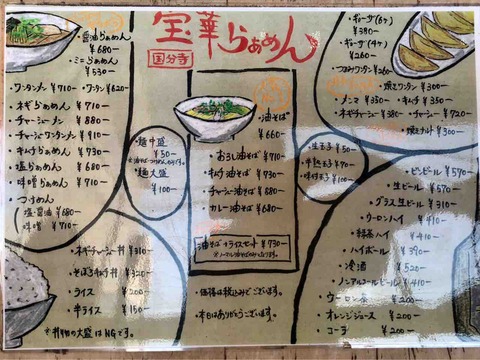 宝華らぁめん
国分寺
・醤油らぁめん
¥680-
・ミニらぁめん
¥530-
・ワンタンメン ¥710- ・ワンタン ¥620-
・ネギらぁめん ¥710-
・チャーシューメン ¥880
・チャーシューワンタンメン ¥910-
・キムチらぁめん ¥730-
・塩らぁめん ¥680-
・味噌らぁめん ¥710-
・つけめん
塩・醤油 ¥680-
味噌 ¥710-
・麺中盛
¥50-
・麺大盛
¥100-
・油そば
¥660-
おろし油そば ¥710-
キムチ油そば ¥730-
チャーシュー油そば ¥680-
カレー油そば ¥680-
油そばライスセット ¥730-
・ギョーザ(6ケ)
¥380-
・ギョーザ(4ケ)
¥260-
・つまみワンタン ¥260-
¥300-
・メンマ ¥350- ・キムチ ¥350-
・ネギチャーシュー ¥380- ・チャーシュー ¥720-
¥300-
・生玉子 ¥50
・半熟玉子 ¥70-
・味付玉子 ¥100-
・ビンビール ¥570-
・生ビール ¥570
・グラス生ビール ¥310-
・ウーロンハイ ¥410-
・緑茶ハイ ¥410-
・ハイボール ¥390
・冷酒 ¥520
・ノンアルコールビール ¥410-
・ウーロン茶 ¥200-
・オレンジジュース ¥200-
・コーラ ¥200-
・ネギチャーシュー丼 ¥310-
・そぼろキムチ丼 ¥320-
・ライス ¥200-
・半ライス ¥150-
※丼物の大盛はNGです。
・価格は税込みでございます。
・本日はありがとうございます。